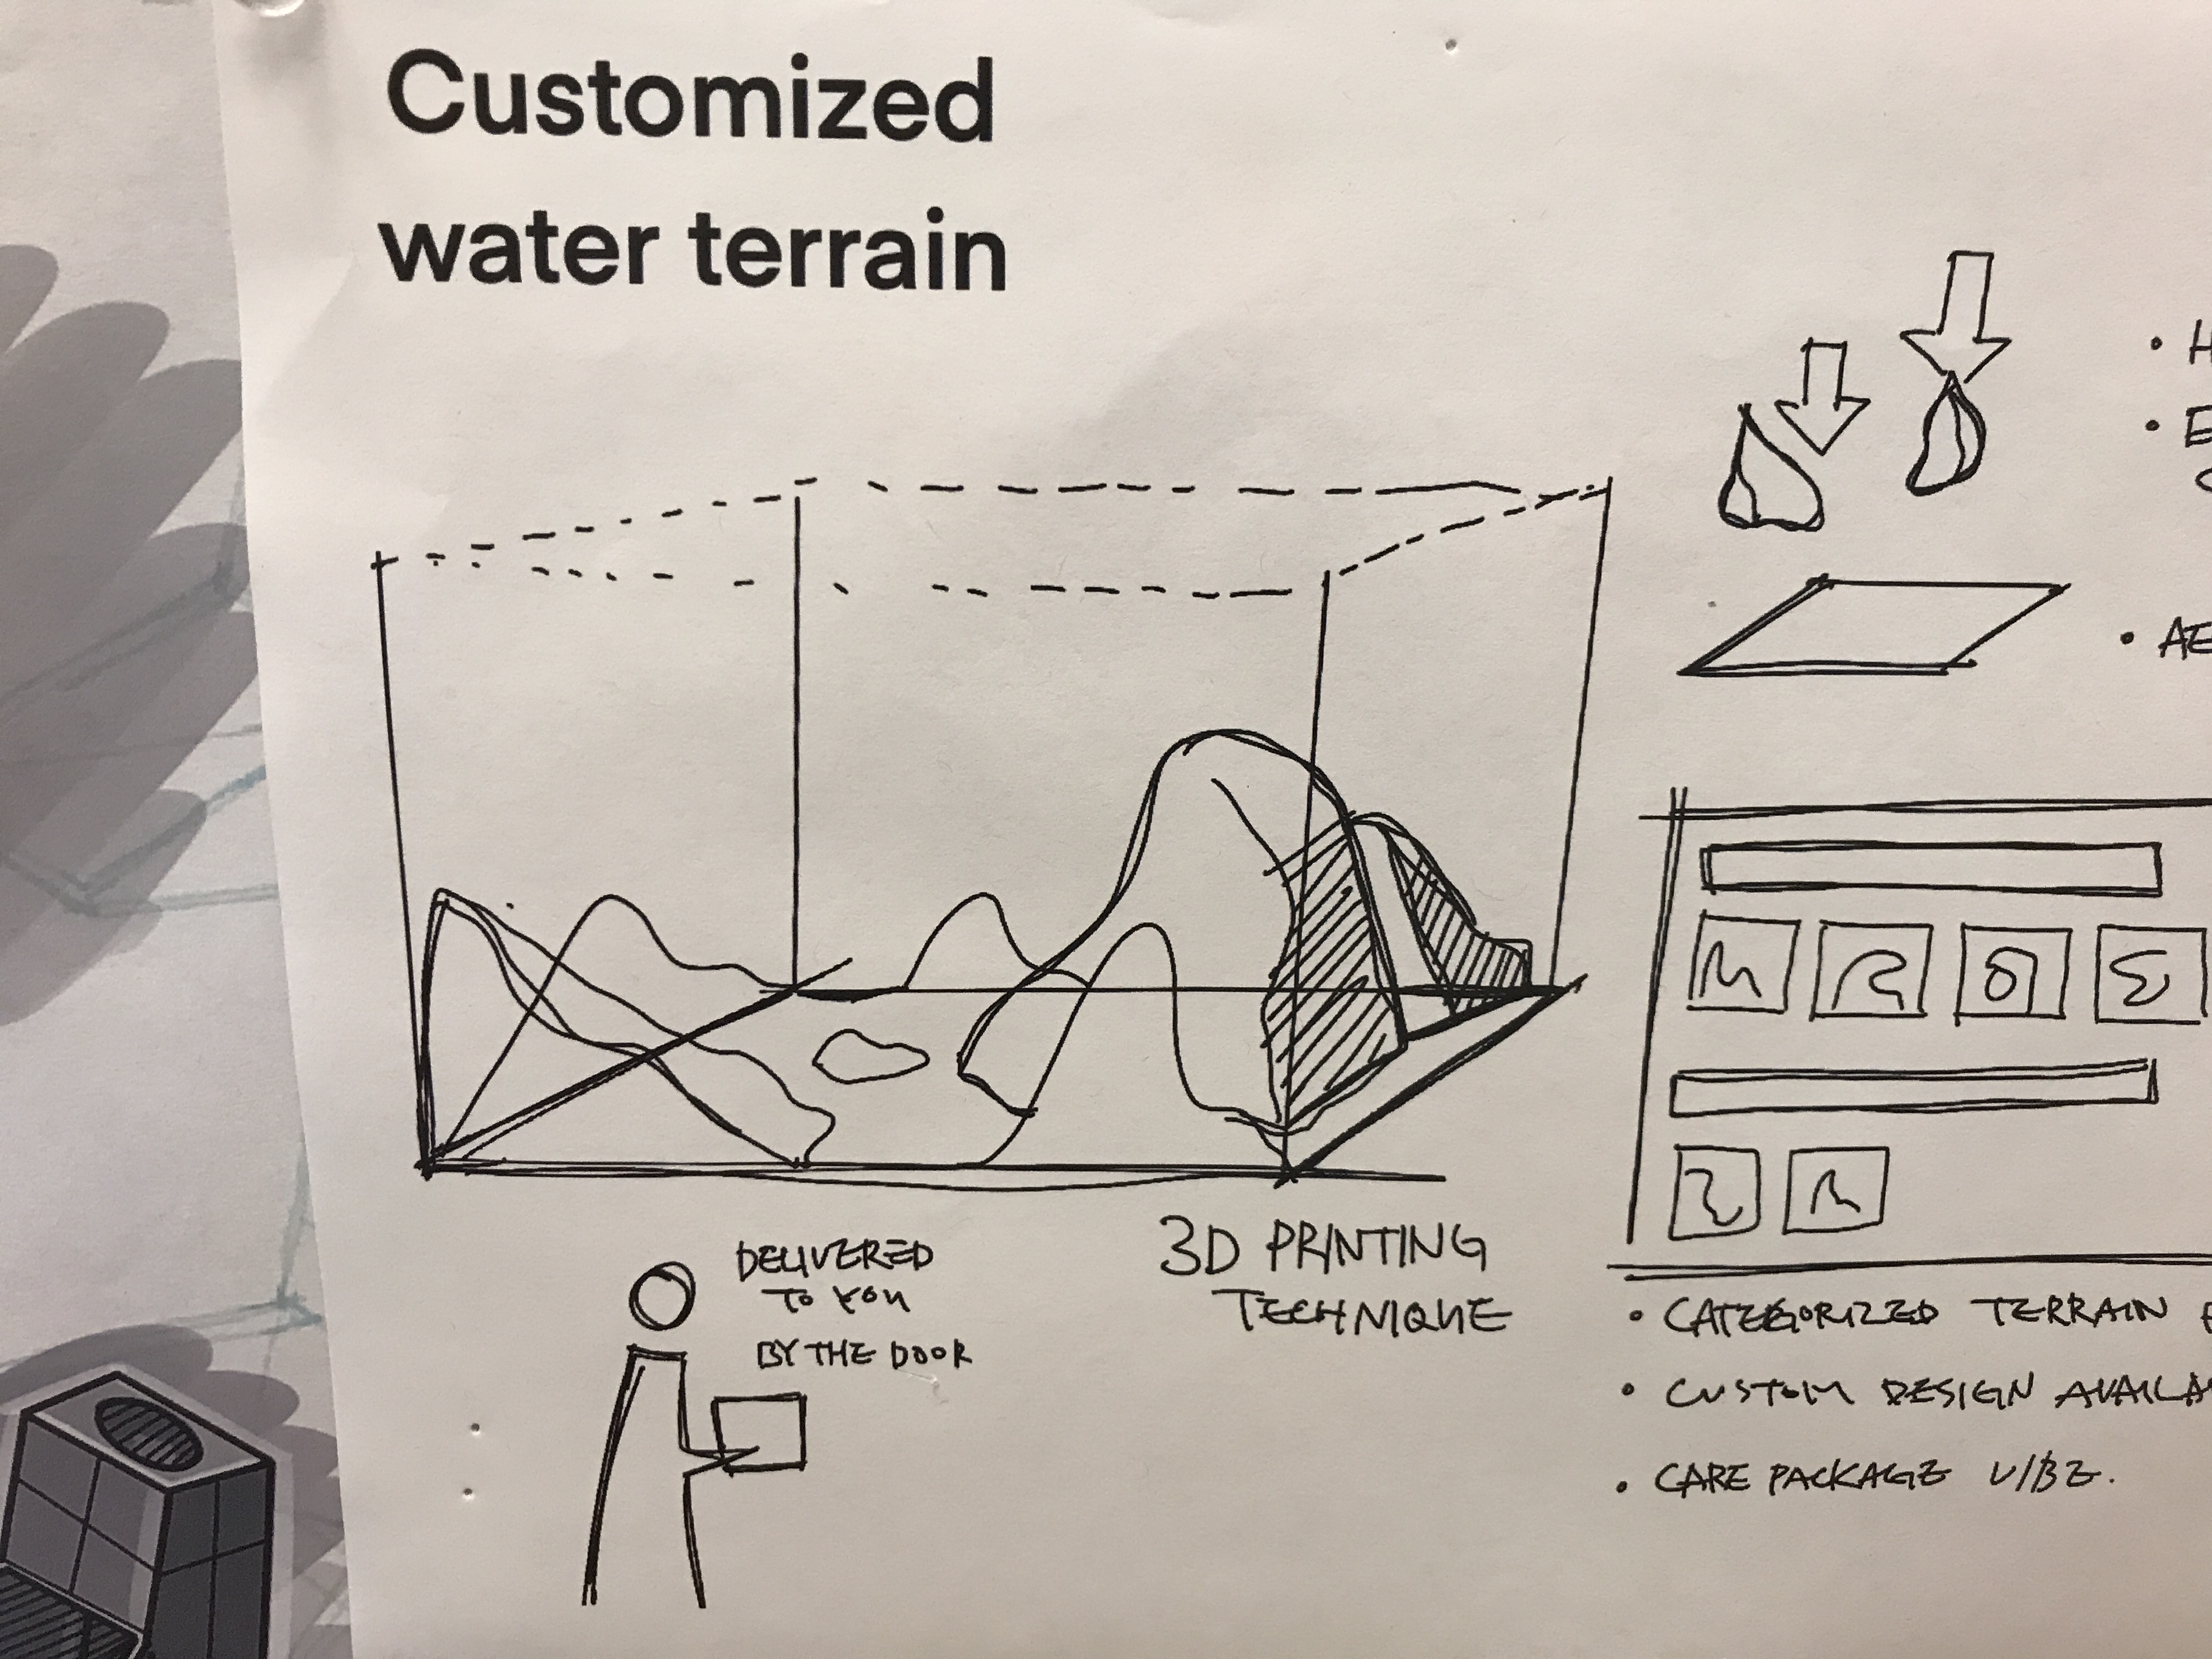 Customized
water terrain
• H
• E
• AE
DELIVERED
TO YOU
BY THE DOOR
3D PRINTING
TECHNIQUE
• CATEGORIZED TERRAIN
• CUSTOM DESIGN AVAILA
• CARE PACKAGE VIBE.